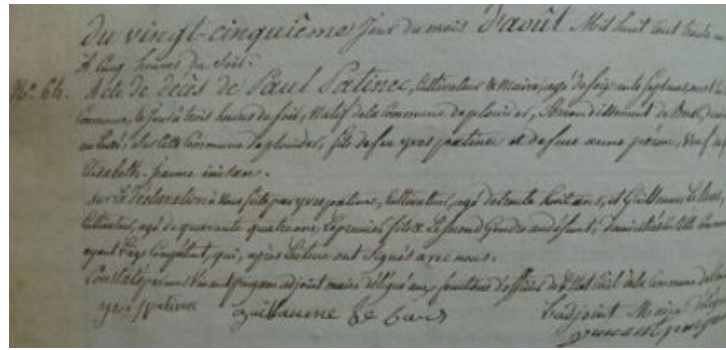 du vingt-cinquième jour du mois d'août Mil huit cent trente
A cinq heures du soir.
No. 64. Acte de décès de Paul Patinec, Cultivateur & Maire, agé de soixante sept ans, mort
Commune, le jour à trois heures du soir, Natif de la Commune de plouider, Arrondissement de Brest,
sur cette Commune de plouider, fils de feu yves patinec et de feue anne Veuf
Elisabeth-jeanne inisan.
sur la Déclaration à Nous faite par yves patinec, Cultivateur, agé de trente huit ans, et Guillaume Le
Cultivateur, agé de quarante quatre ans, le premier fils & le second Gendre au défunt, domiciliés
qui, après Lecture ont Signés avec nous.
Constaté par nous adjoint maire délégué aux fonctions d'officier de l'Etat Civil de la Commune de
yves patinec guillaume le L'adjoint Maire